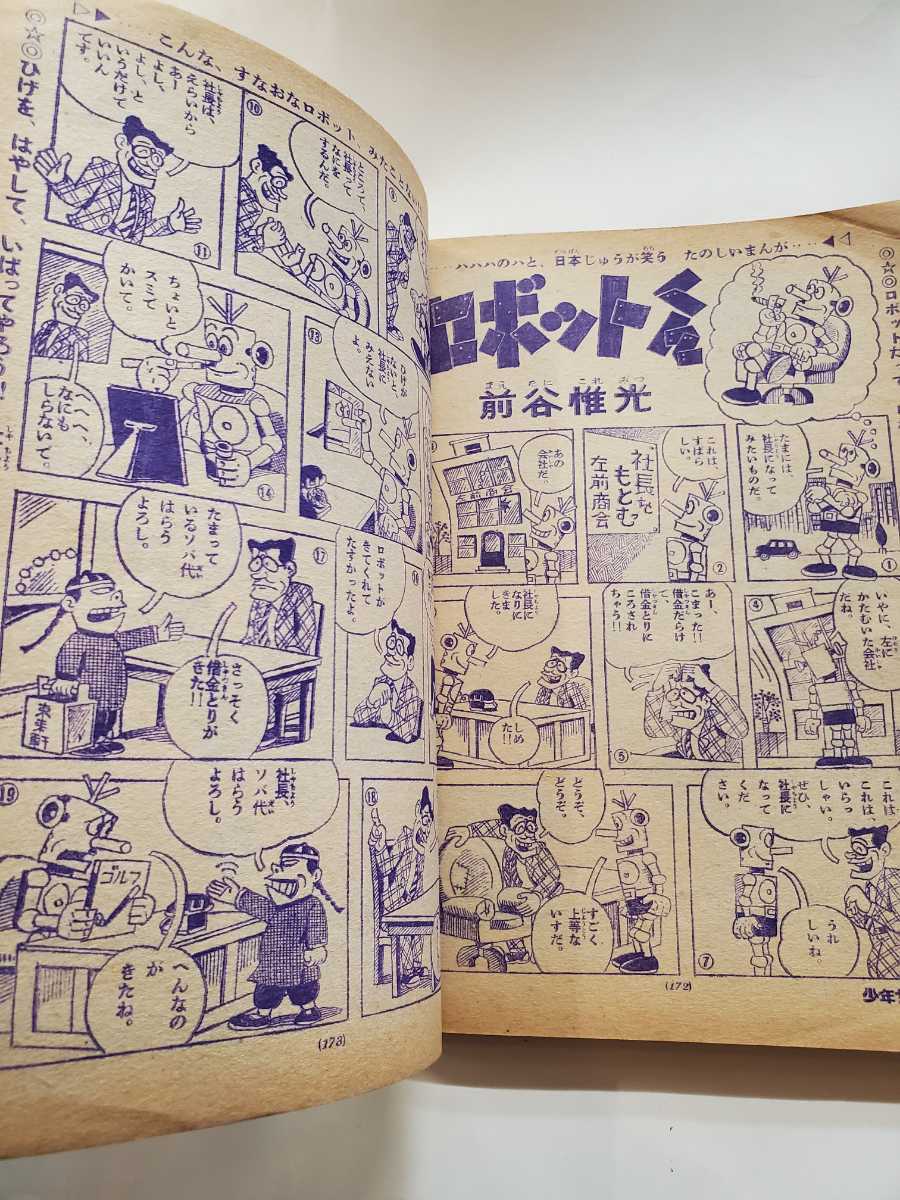 ‥‥ハハハのハと、日本じゅうが笑う たのしいまんが‥‥
ロボットくん
前谷惟光
まえたにこれみつ
たまには、
社長になって
みたいものだ。
①
これは、
すばら
しい。
社長を
もとむ
左前商会
②
あの
会社だ。
左前商会
いやに、左に
かたむいた会社
だね。
④
あー、
こまった!!
借金だらけ
で、
借金とりに
ころされ
ちゃう!!
⑤
社長に
なりに
きま
した。
しめ
た!!
これは
これは、
いらっ
しゃい。
ぜひ、
社長に
なって
くだ
さい。
うれ
しいね。
⑦
どうぞ、
どうぞ。
すごく
上等な
いすだ。
(172)
‥‥こんな、すなおなロボット、みたことな
ところで、
社長って
なにを
するんだ。
⑩
社長は、
えらいから
あー
よし、
よし、と
いうだけで
いいん
です。
⑪
◎☆◎ひげを、はやして、いばってやろう!
ひげが
ないと、
社長に
みえない
よ。
⑬
ちょいと
スミで
かいて。
へへへ、
なにも
しらないで。
⑭
ロボットが
きてくれて
たすかったよ。
たまって
いるソバ代
はらう
よろし。
さっそく
借金とりが
きた!!
来々軒
⑰
⑱
社長、
ソバ代
はらう
よろし。
ゴルフ
へんなの
が
きたね。
⑲
(173)